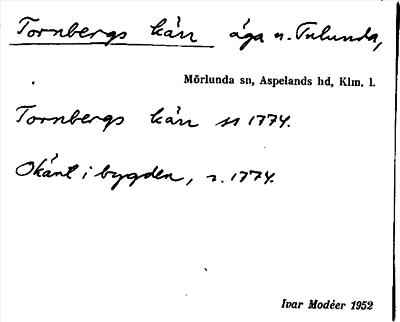 Tornbergs kärr äga n. Tulunda,
Mörlunda sn, Aspelands hd, Klm. l.
Tornbergs kärr sn 1774.
Okänt i bygden, r. 1774.
Ivar Modéer 1952